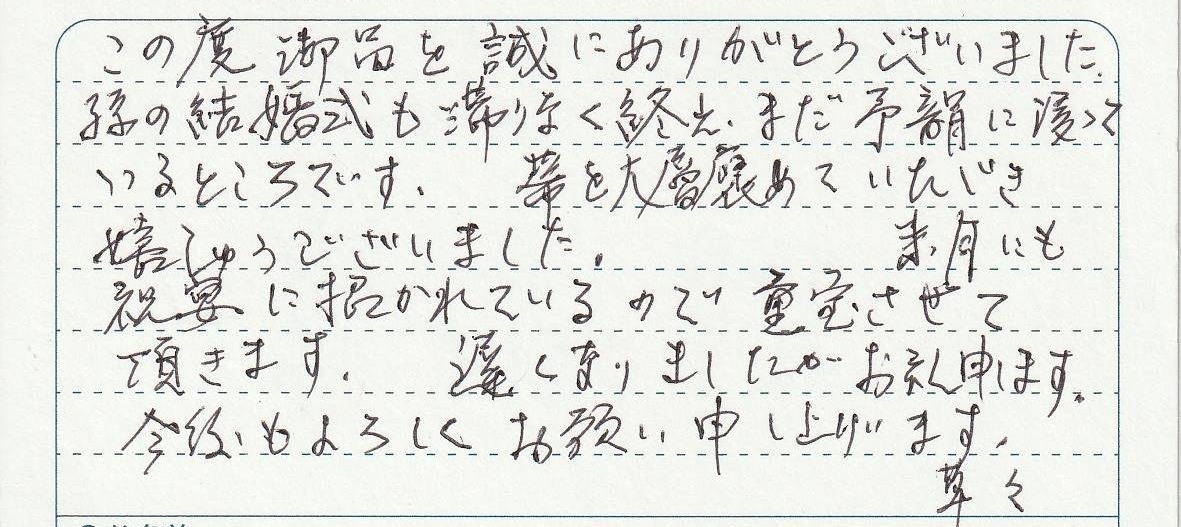 この度御品を誠にありがとうございました.
孫の結婚式も滞りなく終え.まだ予韻に浸って
いるところです. 帯を大層褒めていただき
嬉しゅうございました. 来月にも
祝宴に招かれているので重宝させて
頂きます. 遅くなりましたがお礼申します.
今後もよろしくお願い申し上げます.
草々